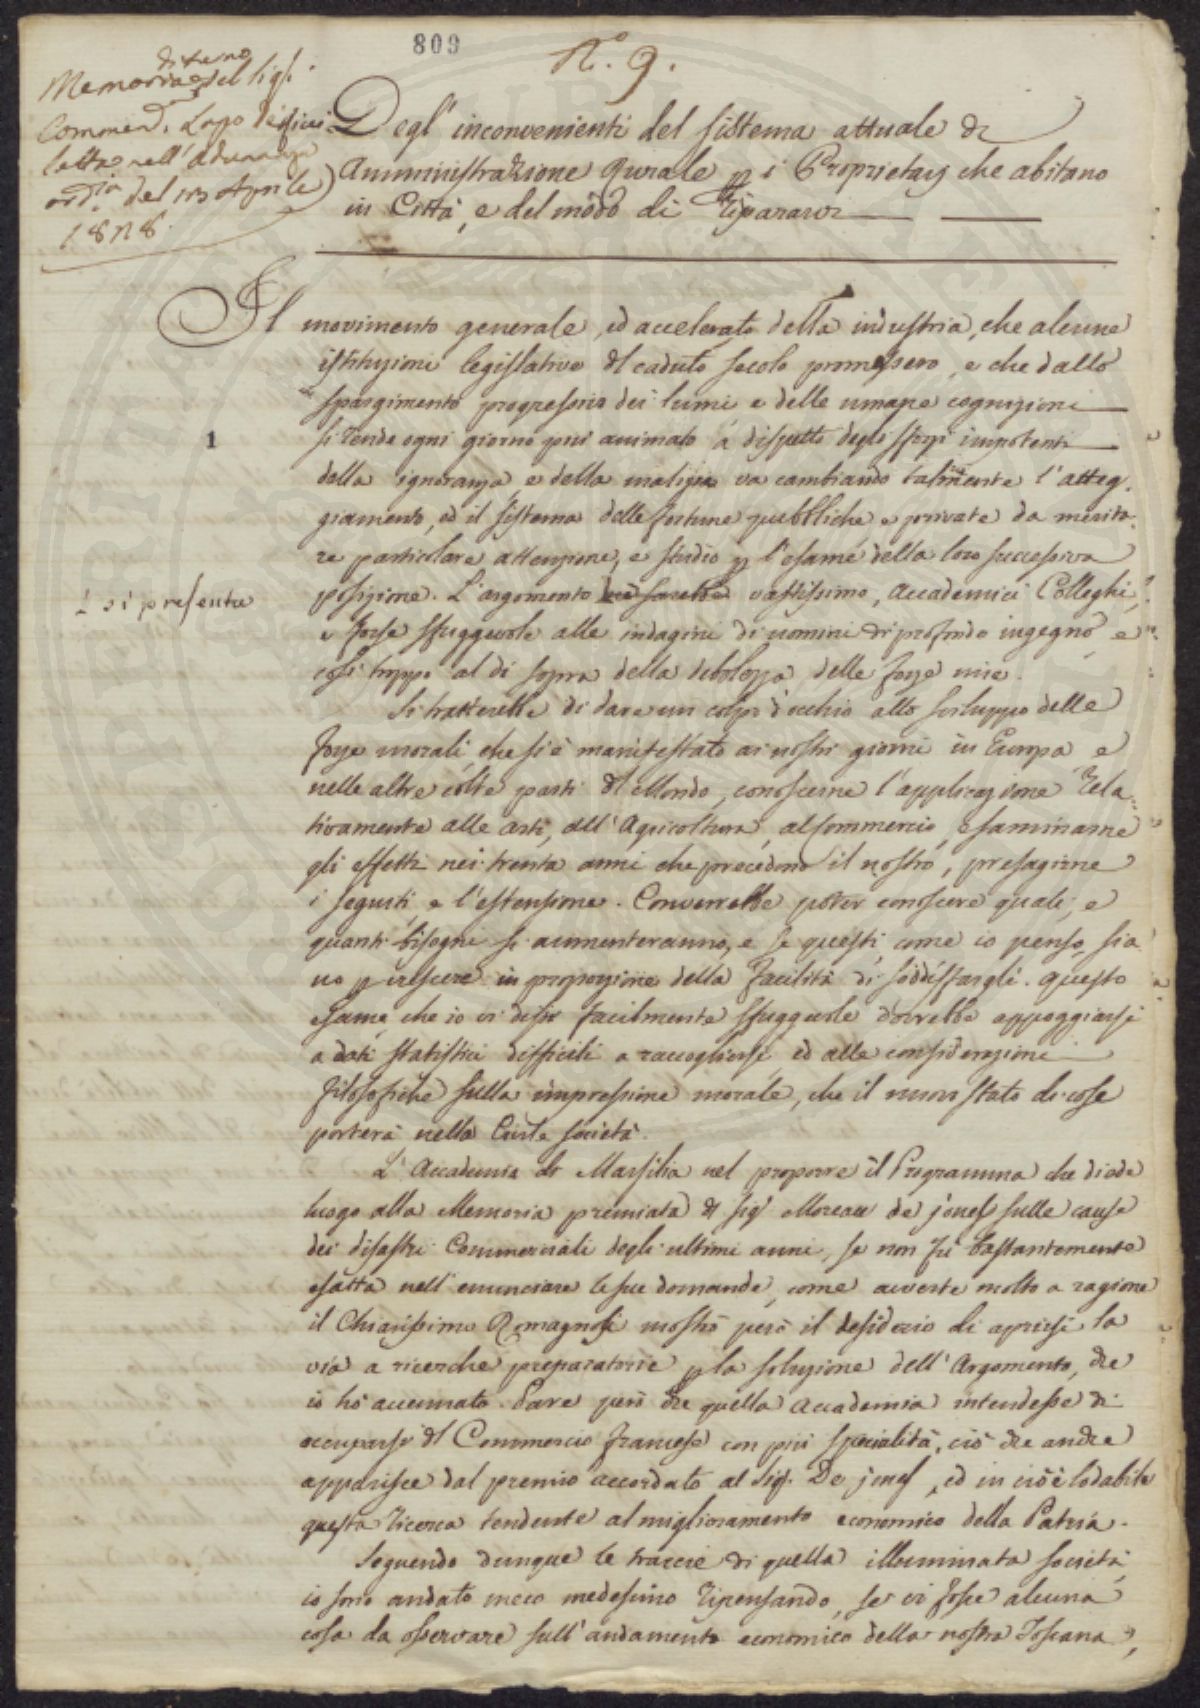 809
N.° 9.
Memoria del Sig.
diturno
Commend. Lapo de Ricci
letta nell'Adunanza
ord.ia del 13 Aprile
1828.
Degl' inconvenienti del sistema attuale di
Amministrazione Rurale p i Proprietarj che abitano
in Città, e del modo di Ripararvi
Il movimento generale, ed accelerato della industria, che alcune
istituzioni legislative del caduto secolo promossero, e che dallo
spargimento progressivo dei lumi e delle umane cognizioni
si rende ogni giorno più animato a dispetto degli sforzi impotenti
1
della ignoranza e della malizia va cambiando talmente l'atteg-
giamento, ed il sistema delle fortune pubbliche e private da merita-
re particolare attenzione, e studio p l'esame della loro successiva
posizione. L'argomento sarebbe vastissimo, Accademici Colleghi,
si presenta
e forse sfuggevole alle indagini di uomini di profondo ingegno, e
così troppo al di sopra della debolezza delle forze mie.
Si tratterebbe di dare un colpo d'occhio allo sviluppo delle
forze morali, che si è manifestato ai nostri giorni in Europa e
nelle altre colte parti del Mondo, conoscerne l'applicazione Rela-
tivamente alle arti, all'Agricoltura, al Commercio, esaminarne
gli effetti nei trenta anni che precedono il nostro, presagirne
i seguiti, e l'estensione. Converrebbe poter conoscere quali, e
quanti bisogni si aumenteranno, e se questi, come io penso, sia-
no p crescere in proporzione della facilità di soddisfargli. Questo
esame, che io vi dissi facilmente sfuggevole dovrebbe appoggiarsi
a dati statistici difficili a raccogliersi, ed alle considerazioni
filosofiche sulla impressione morale, che il nuovo stato di cose
porterà nella Civile società.
L'Accademia di Marsilia nel proporre il Programma che diede
luogo alla Memoria premiata del Sig. Moreau de Jonès sulle cause
dei disastri Commerciali degli ultimi anni, se non fù bastantemente
esatta nell'enunciare le sue domande, come avverte molto a ragione
il Chiarissimo Romagnosi mostrò però il desiderio di aprirsi la
via a ricerche preparatorie p la soluzione dell'Argomento, che
io hò accennato. Pare però che quella Accademia intendesse di
occuparsi del Commercio francese con più specialità, ciò che anche
apparisce dal premio accordato al Sig. De Jonès, ed in ciò è lodabile
questa Ricerca tendente al miglioramento economico della Patria.
Seguendo dunque le traccie di quella illuminata società,
io sono andato meco medesimo Ripensando, se vi fosse alcuna
cosa da osservare sull'andamento economico della nostra Toscana,